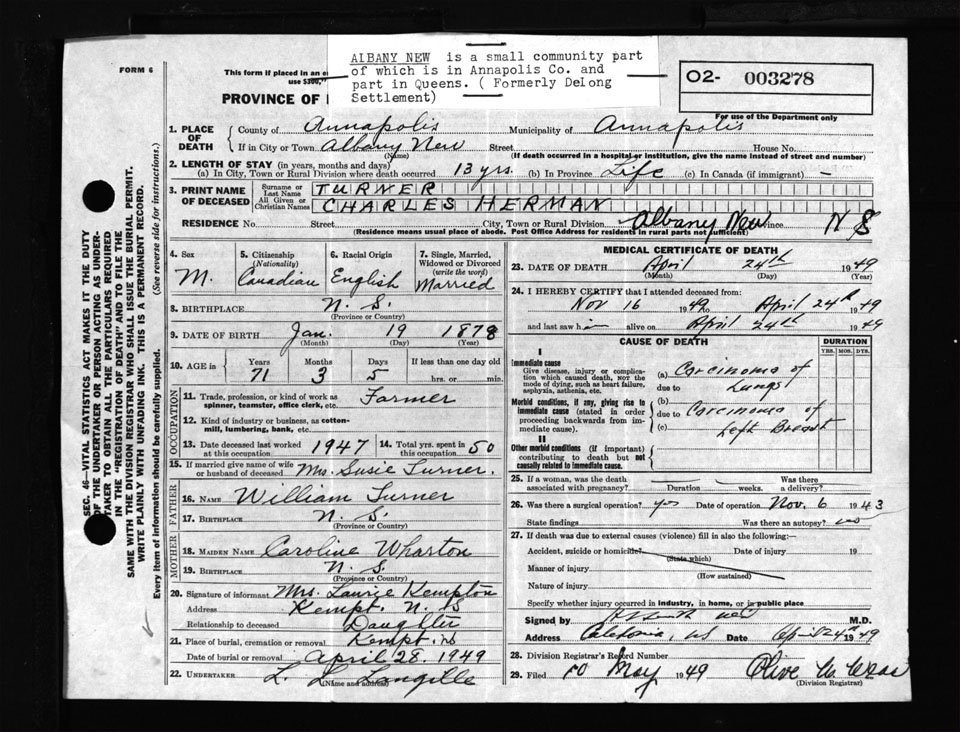 FORM 6
ALBANY NEW is a small community part
of which is in Annapolis Co. and
part in Queens. ( Formerly DeLong
Settlement)
O2- 003278
For use of the Department only
This form if placed in an e
use $300,"
PROVINCE OF
1. PLACE OF DEATH
County of Annapolis Municipality of Annapolis
If in City or Town Albany New Street House No.
(Name) (If death occurred in a hospital or institution, give the name instead of street and number)
2. LENGTH OF STAY (in years, months and days)
(a) In City, Town or Rural Division where death occurred 13 yrs. (b) In Province Life (c) In Canada (if immigrant) —
3. PRINT NAME OF DECEASED
Surname or Last Name TURNER
All Given or Christian Names CHARLES HERMAN
RESIDENCE No. Street City, Town or Rural Division Albany New ince N S
(Residence means usual place of abode. Post Office Address for residents in rural parts not sufficient)
4. Sex M. 5. Citizenship (Nationality) Canadian 6. Racial Origin English 7. Single, Married, Widowed or Divorced (write the word) Married
8. BIRTHPLACE N. S.
(Province or Country)
9. DATE OF BIRTH Jan. 19 1878
(Month) (Day) (Year)
10. AGE IN Years 71 Months 3 Days 5 If less than one day old hrs. or min.
OCCUPATION
11. Trade, profession, or kind of work as spinner, teamster, office clerk, etc. Farmer
12. Kind of industry or business, as cotton-mill, lumbering, bank, etc.
13. Date deceased last worked at this occupation 1947 14. Total yrs. spent in this occupation 50
15. If married give name of wife or husband of deceased Mrs. Susie Turner.
FATHER
16. NAME William Turner
17. BIRTHPLACE N. S.
(Province or Country)
MOTHER
18. MAIDEN NAME Caroline Wharton
19. BIRTHPLACE N. S.
(Province or Country)
20. Signature of informant Mrs. Laurie Kempton
Address Kempt. N. S
Relationship to deceased Daughter
21. Place of burial, cremation or removal Kempt. NS
Date of burial or removal April 28. 1949
22. UNDERTAKER L. L. Langille
(Name and address)
MEDICAL CERTIFICATE OF DEATH
23. DATE OF DEATH April 24th 1949
(Month) (Day) (Year)
24. I HEREBY CERTIFY that I attended deceased from:
Nov 16 1949 to April 24th 1949
and last saw him alive on April 24th 1949
CAUSE OF DEATH DURATION
YRS. MOS. DYS.
I
Immediate cause
Give disease, injury or complication which caused death, NOT the mode of dying, such as heart failure, asphyxia, asthenia, etc.
(a) Carcinoma of
due to Lungs
Morbid conditions, if any, giving rise to immediate cause (stated in order proceeding backwards from immediate cause).
(b)
due to Carcinoma of
(c) Left Breast
II
Other morbid conditions (if important) contributing to death but not causally related to immediate cause.
25. If a woman, was the death associated with pregnancy? Duration weeks. Was there a delivery?
26. Was there a surgical operation? yes Date of operation Nov. 6 1943
State findings Was there an autopsy? no
27. If death was due to external causes (violence) fill in also the following:—
Accident, suicide or homicide? Date of injury 19
(State which)
Manner of injury
(How sustained)
Nature of injury
Specify whether injury occurred in industry, in home, or in public place
Signed by M.D.
Address Caledonia, NS Date April 24th 1949
28. Division Registrar's Record Number
29. Filed 10 May 1949 Olive
(Division Registrar)
SEC. 46—VITAL STATISTICS ACT MAKES IT THE DUTY
OF THE UNDERTAKER OR PERSON ACTING AS UNDER-
TAKER TO OBTAIN ALL THE PARTICULARS REQUIRED
IN THE "REGISTRATION OF DEATH" AND TO FILE THE
SAME WITH THE DIVISION REGISTRAR WHO SHALL ISSUE THE BURIAL PERMIT.
WRITE PLAINLY WITH UNFADING INK. THIS IS A PERMANENT RECORD.
Every item of information should be carefully supplied. (See reverse side for instructions.)